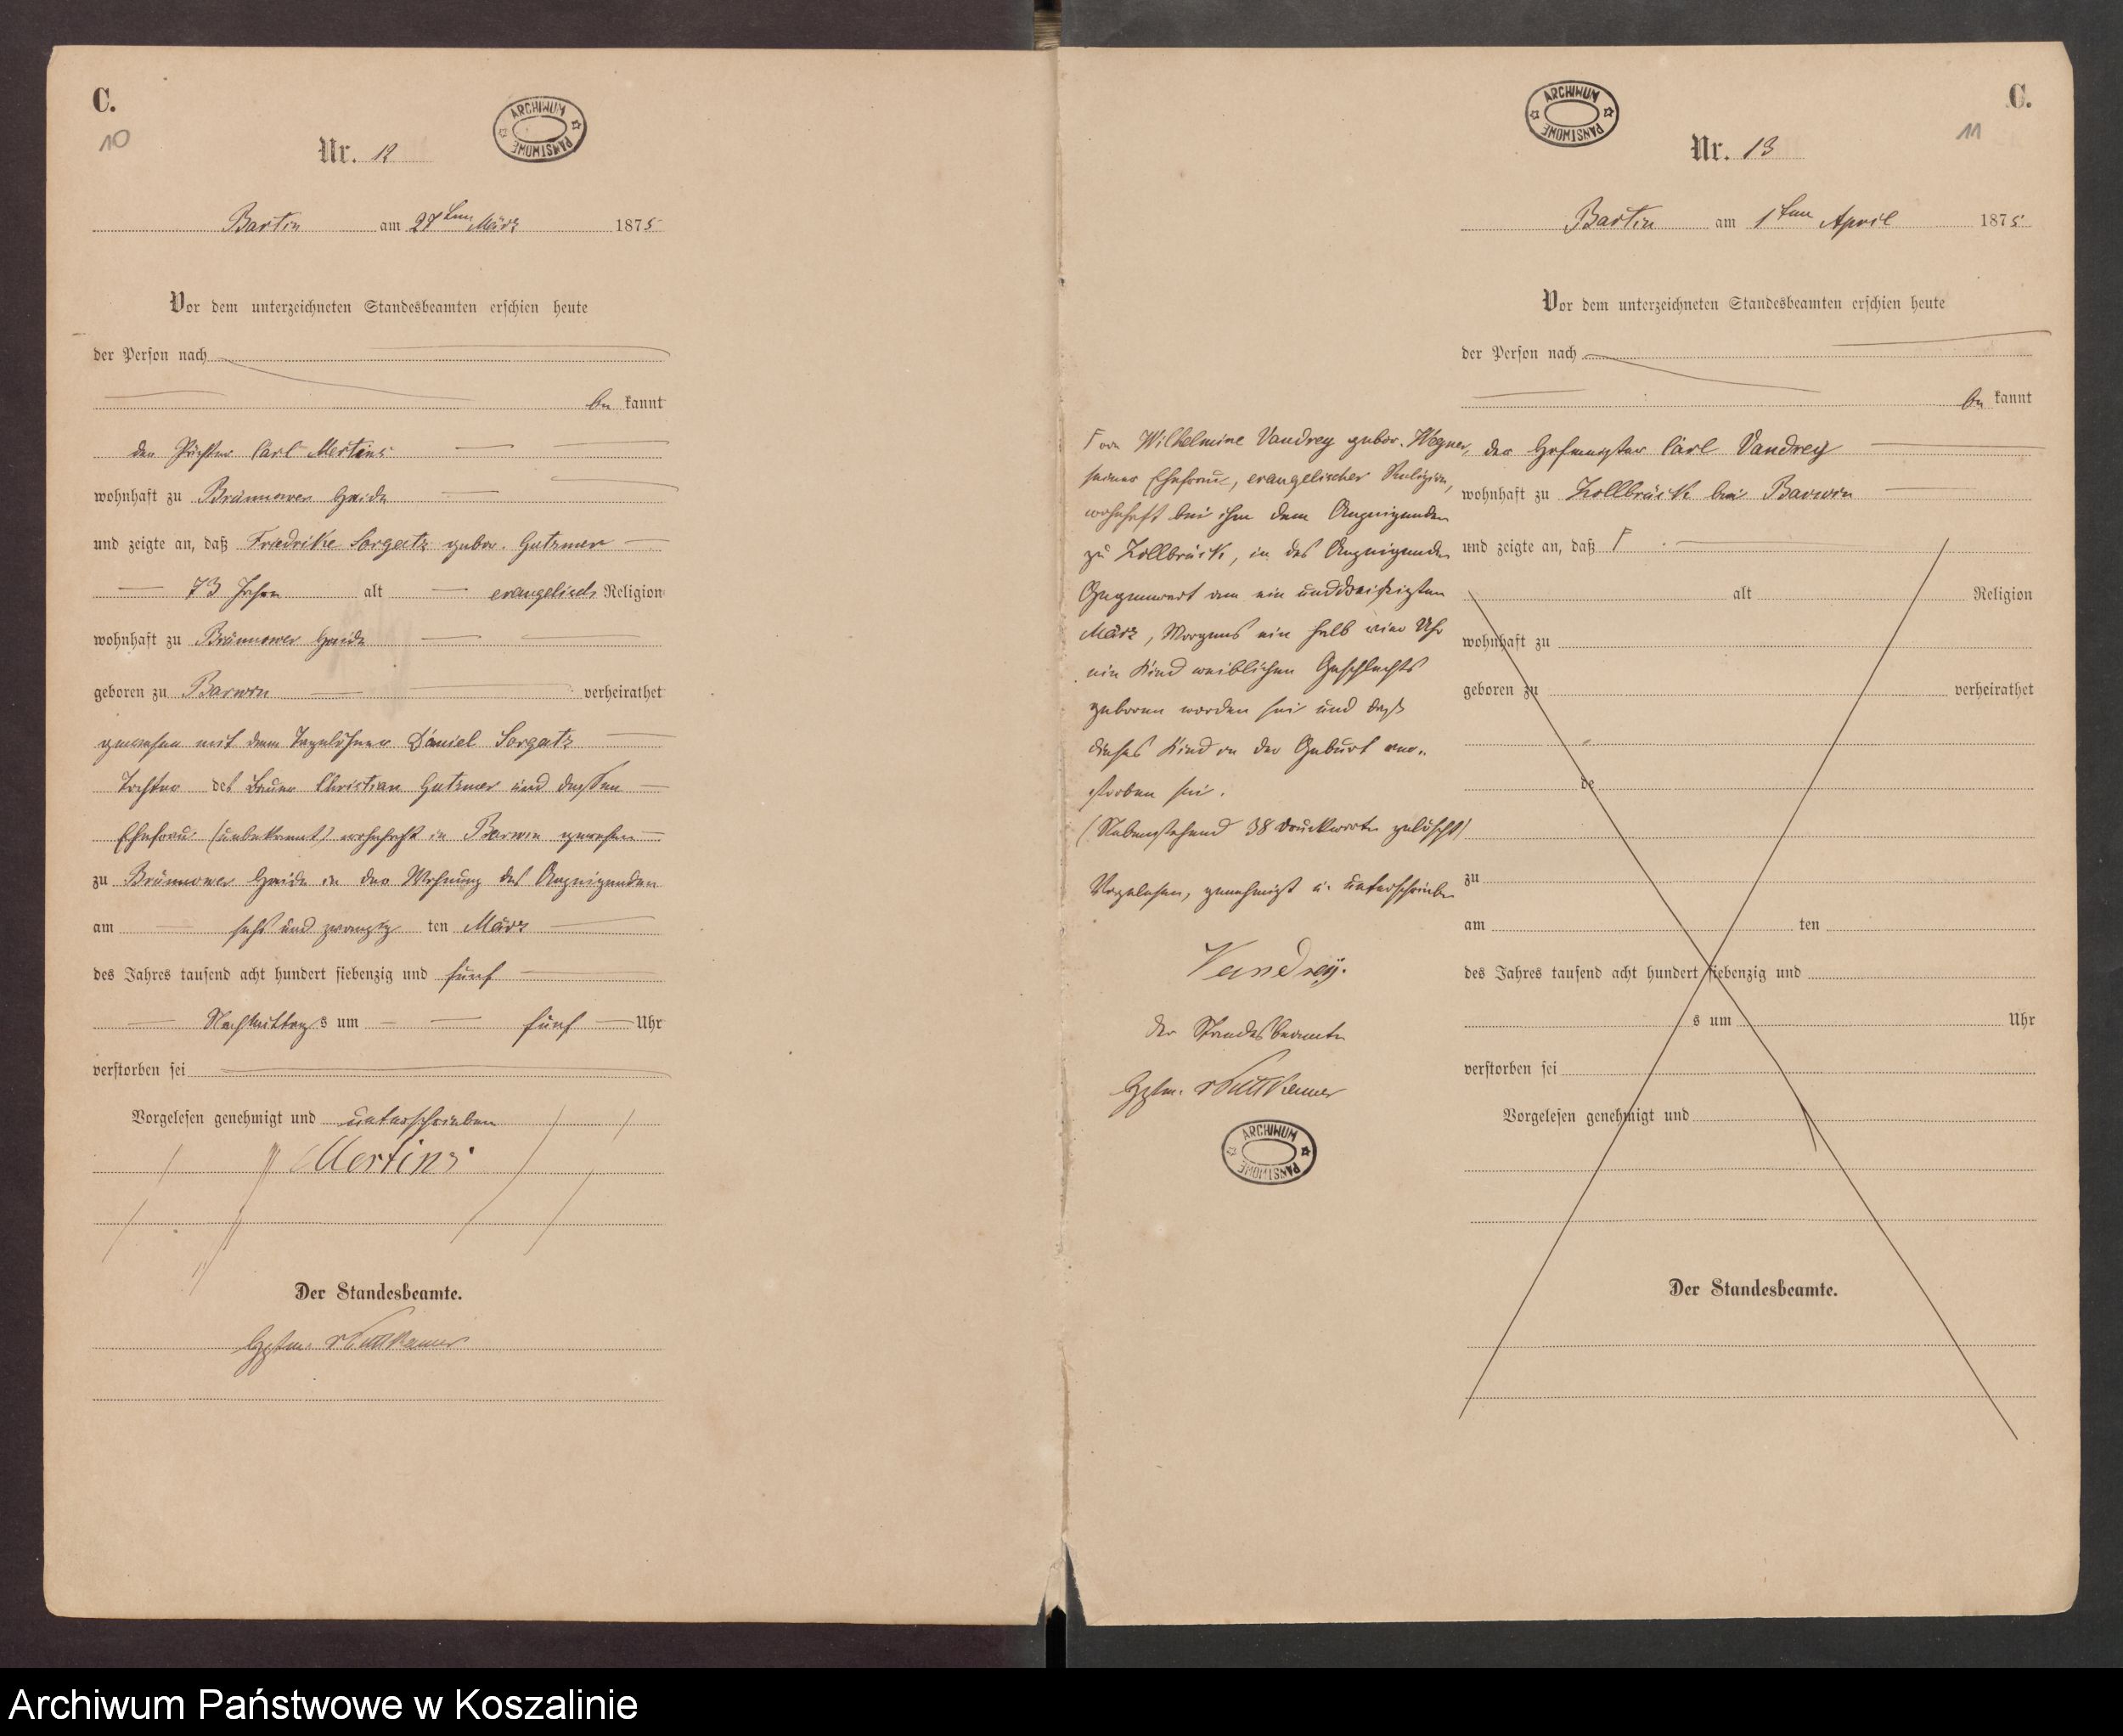 C.
10
ARCHIWUM PAŃSTWOWE
Nr. 12
Bartin am 27ten März 1875
Vor dem unterzeichneten Standesbeamten erschien heute
der Person nach
be kannt
der Pächter Carl Mertins
wohnhaft zu Brünnower Haide
und zeigte an, daß Friedrike Sorgatz gebor. Gutzmer
73 Jahre alt evangelisch Religion
wohnhaft zu Brünnower Haide
geboren zu Barwin verheirathet
gewesen mit dem Tagelöhner Daniel Sorgatz
Tochter des Bauer Christian Gutzmer und dessen
Ehefrau (unbekannt) wohnhaft in Barwin gewesen
zu Brünnower Haide in der Wohnung des Anzeigenden
am sechs und zwanzig ten März
des Jahres tausend acht hundert siebenzig und fünf
Nachmittag s um fünf Uhr
verstorben sei
Vorgelesen genehmigt und unterschrieben
Mertins
Der Standesbeamte.
Hptm. v Puttkamer
C.
11
ARCHIWUM PAŃSTWOWE
Nr. 13
Bartin am 1ten April 1875
Vor dem unterzeichneten Standesbeamten erschien heute
der Person nach
be kannt
der Hofmeister Carl Vandrey
wohnhaft zu Zollbrück bei Barwin
und zeigte an, daß Γ
alt Religion
wohnhaft zu
geboren zu verheirathet
de
zu
am ten
des Jahres tausend acht hundert siebenzig und
s um Uhr
verstorben sei
Vorgelesen genehmigt und
Der Standesbeamte.
Γ von Wilhelmine Vandrey gebor. Wegner,
seiner Ehefrau, evangelischer Religion,
wohnhaft bei ihm dem Anzeigenden
zu Zollbrück, in des Anzeigenden
Gegenwart am ein unddreißigsten
März, Morgens ein halb vier Uhr
ein Kind weiblichen Geschlechts
geboren worden sei und daß
dieses Kind in der Geburt ver-
storben sei.
(Nebenstehend 38 Druckworte gelöscht)
Vorgelesen, genehmigt u. unterschrieben
Vandreÿ.
Der Standesbeamte
Hptm. v Puttkamer
ARCHIWUM PAŃSTWOWE
Archiwum Państwowe w Koszalinie